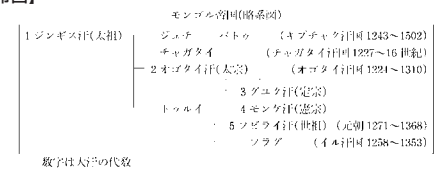 モンゴル帝国(略系図)
1 ジンギス汗(太祖) ジュチ バトゥ (キプチャク汗国1243～1502)
チャガタイ (チャガタイ汗国1227～16世紀)
2 オゴタイ汗(太宗) (オゴタイ汗国1224～1310)
3 グユク汗(定宗)
トゥルイ 4 モンケ汗(憲宗)
5 フビライ汗(世祖) (元朝1271～1368)
フラグ (イル汗国1258～1353)
数字は大汗の代数